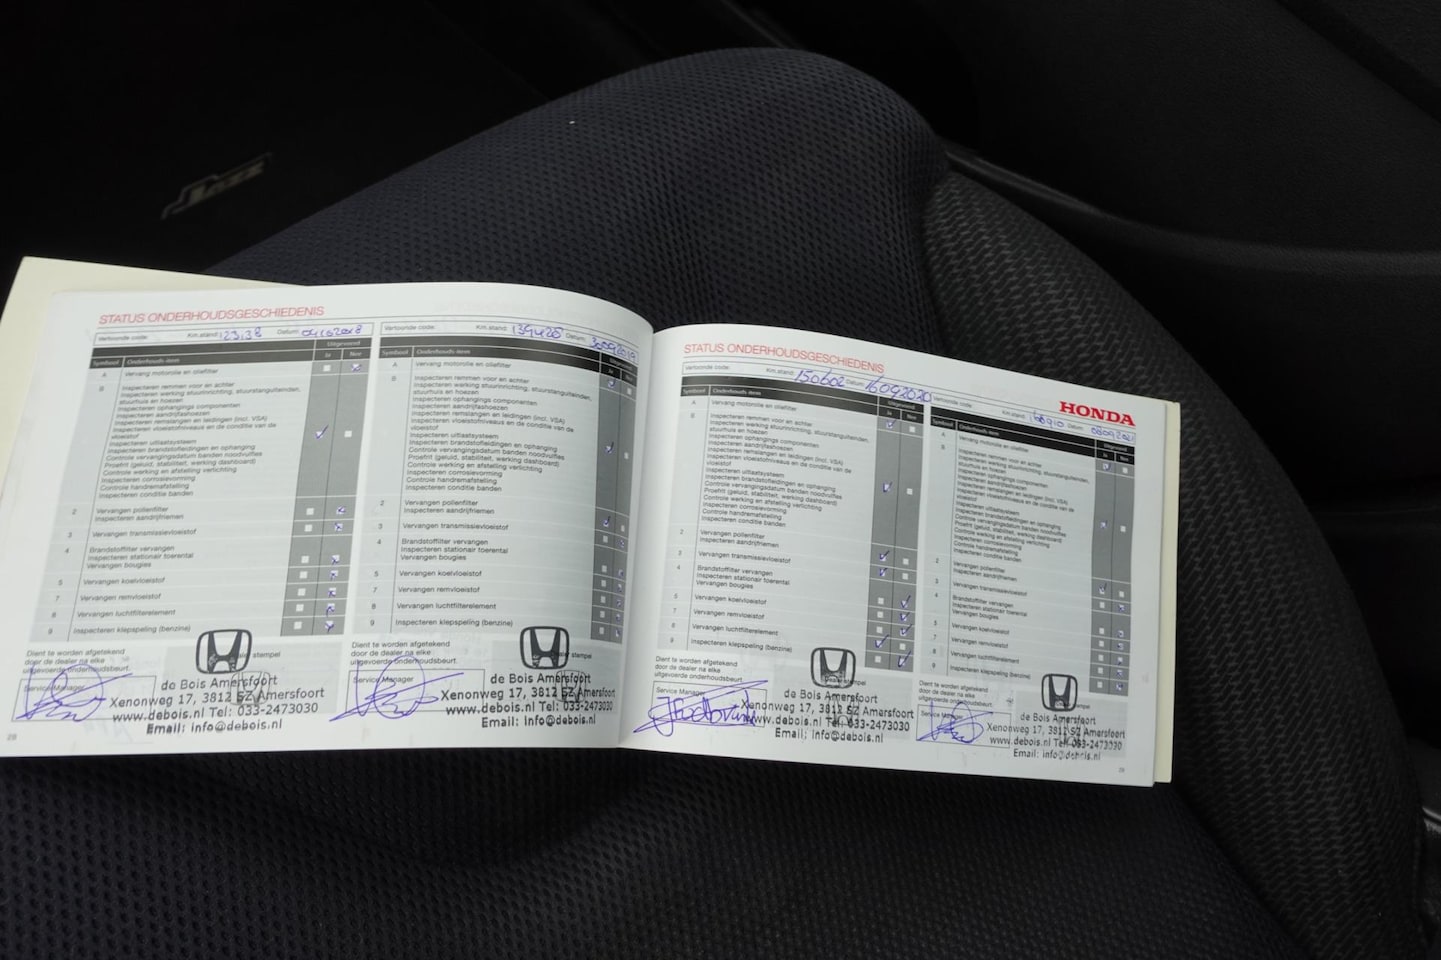 Jazz
STATUS ONDERHOUDSGESCHIEDENIS
Vertoonde code: Km.stand: 123138 Datum: 04102018
Uitgevoerd
Symbool Onderhouds-item Ja Nee
A Vervang motorolie en oliefilter
B Inspecteren remmen voor en achter
Inspecteren werking stuurinrichting, stuurstangeinden,
stuurhuis en hoezen
Inspecteren ophangings componenten
Inspecteren aandrijfashoezen
Inspecteren remslangen en leidingen (incl. VSA)
Inspecteren vloeistofniveaus en de conditie van de
vloeistof
Inspecteren uitlaatsysteem
Inspecteren brandstofleidingen en ophanging
Controle vervangingsdatum banden noodvulfles
Proefrit (geluid, stabiliteit, werking dashboard)
Controle werking en afstelling verlichting
Inspecteren corrosievorming
Controle handremafstelling
Inspecteren conditie banden
2 Vervangen pollenfilter
Inspecteren aandrijfriemen
3 Vervangen transmissievloeistof
4 Brandstoffilter vervangen
Inspecteren stationair toerental
Vervangen bougies
5 Vervangen koelvloeistof
7 Vervangen remvloeistof
8 Vervangen luchtfilterelement
9 Inspecteren klepspeling (benzine)
Dient te worden afgetekend
door de dealer na elke
uitgevoerde onderhoudsbeurt.
stempel
Service Manager
de Bois Amersfoort
Xenonweg 17, 3812 SZ Amersfoort
www.debois.nl Tel: 033-2473030
Email: info@debois.nl
28
Vertoonde code: Km.stand: 139426 Datum: 30092019
Uitgevoerd
Symbool Onderhouds-item Ja Nee
A Vervang motorolie en oliefilter
B Inspecteren remmen voor en achter
Inspecteren werking stuurinrichting, stuurstangeinden,
stuurhuis en hoezen
Inspecteren ophangings componenten
Inspecteren aandrijfashoezen
Inspecteren remslangen en leidingen (incl. VSA)
Inspecteren vloeistofniveaus en de conditie van de
vloeistof
Inspecteren uitlaatsysteem
Inspecteren brandstofleidingen en ophanging
Controle vervangingsdatum banden noodvulfles
Proefrit (geluid, stabiliteit, werking dashboard)
Controle werking en afstelling verlichting
Inspecteren corrosievorming
Controle handremafstelling
Inspecteren conditie banden
2 Vervangen pollenfilter
Inspecteren aandrijfriemen
3 Vervangen transmissievloeistof
4 Brandstoffilter vervangen
Inspecteren stationair toerental
Vervangen bougies
5 Vervangen koelvloeistof
7 Vervangen remvloeistof
8 Vervangen luchtfilterelement
9 Inspecteren klepspeling (benzine)
Dient te worden afgetekend
door de dealer na elke
uitgevoerde onderhoudsbeurt.
stempel
Service Manager
de Bois Amersfoort
Xenonweg 17, 3812 SZ Amersfoort
www.debois.nl Tel: 033-2473030
Email: info@debois.nl
STATUS ONDERHOUDSGESCHIEDENIS
Vertoonde code: Km.stand: 150602 Datum: 16092020
Uitgevoerd
Symbool Onderhouds-item Ja Nee
A Vervang motorolie en oliefilter
B Inspecteren remmen voor en achter
Inspecteren werking stuurinrichting, stuurstangeinden,
stuurhuis en hoezen
Inspecteren ophangings componenten
Inspecteren aandrijfashoezen
Inspecteren remslangen en leidingen (incl. VSA)
Inspecteren vloeistofniveaus en de conditie van de
vloeistof
Inspecteren uitlaatsysteem
Inspecteren brandstofleidingen en ophanging
Controle vervangingsdatum banden noodvulfles
Proefrit (geluid, stabiliteit, werking dashboard)
Controle werking en afstelling verlichting
Inspecteren corrosievorming
Controle handremafstelling
Inspecteren conditie banden
2 Vervangen pollenfilter
Inspecteren aandrijfriemen
3 Vervangen transmissievloeistof
4 Brandstoffilter vervangen
Inspecteren stationair toerental
Vervangen bougies
5 Vervangen koelvloeistof
7 Vervangen remvloeistof
8 Vervangen luchtfilterelement
9 Inspecteren klepspeling (benzine)
Dient te worden afgetekend
door de dealer na elke
uitgevoerde onderhoudsbeurt.
Dealer stempel
Service Manager
de Bois Amersfoort
Xenonweg 17, 3812 SZ Amersfoort
www.debois.nl Tel: 033-2473030
Email: info@debois.nl
HONDA
Vertoonde code: Km.stand: Datum: 08092021
Uitgevoerd
Symbool Onderhouds-item Ja Nee
A Vervang motorolie en oliefilter
B Inspecteren remmen voor en achter
Inspecteren werking stuurinrichting, stuurstangeinden,
stuurhuis en hoezen
Inspecteren ophangings componenten
Inspecteren aandrijfashoezen
Inspecteren remslangen en leidingen (incl. VSA)
Inspecteren vloeistofniveaus en de conditie van de
vloeistof
Inspecteren uitlaatsysteem
Inspecteren brandstofleidingen en ophanging
Controle vervangingsdatum banden noodvulfles
Proefrit (geluid, stabiliteit, werking dashboard)
Controle werking en afstelling verlichting
Inspecteren corrosievorming
Controle handremafstelling
Inspecteren conditie banden
2 Vervangen pollenfilter
Inspecteren aandrijfriemen
3 Vervangen transmissievloeistof
4 Brandstoffilter vervangen
Inspecteren stationair toerental
Vervangen bougies
5 Vervangen koelvloeistof
7 Vervangen remvloeistof
8 Vervangen luchtfilterelement
9 Inspecteren klepspeling (benzine)
Dient te worden afgetekend
door de dealer na elke
uitgevoerde onderhoudsbeurt.
stempel
Service Manager
de Bois Amersfoort
Xenonweg 17, 3812 SZ Amersfoort
www.debois.nl Tel: 033-2473030
Email: info@debois.nl
29